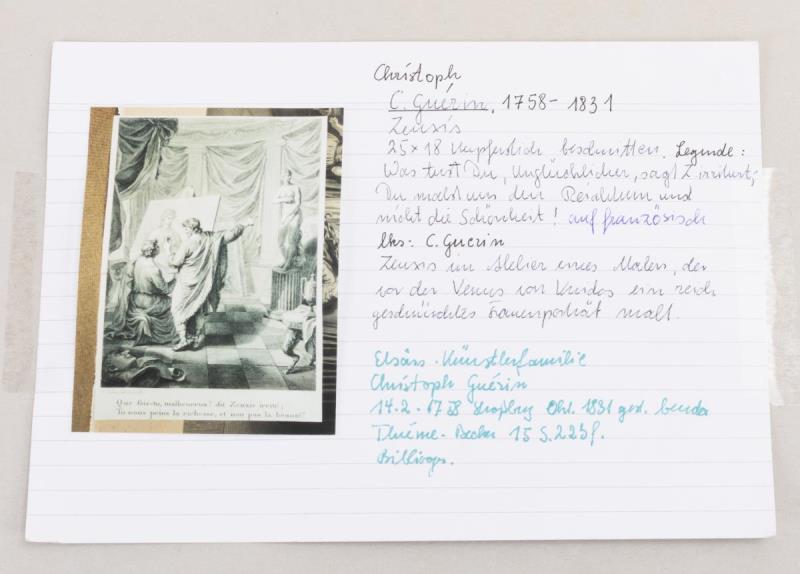 Christoph
C. Guérin, 1758 - 1831
Zeuxis
25 x 18 Kupferstich beschnitten. Legende:
Was tust Du, Unglücklicher, sagt Z. irritiert,
Du malst uns den Reichtum und
nicht die Schönheit! auf französisch
lks: C. Guerin
Zeuxis im Atelier eines Malers, der
vor der Venus von Knidos ein reich
geschmücktes Frauenporträt malt.
Elsäss. Künstlerfamilie
Christoph Guérin
14.2.1758 Straßbrg Okt. 1831 gest. benda
Thieme-Becker 15 S. 225f.
Que fais-tu, malheureux! dit Zeuxis irrité;
Tu nous peins la richesse, et non pas la beauté!